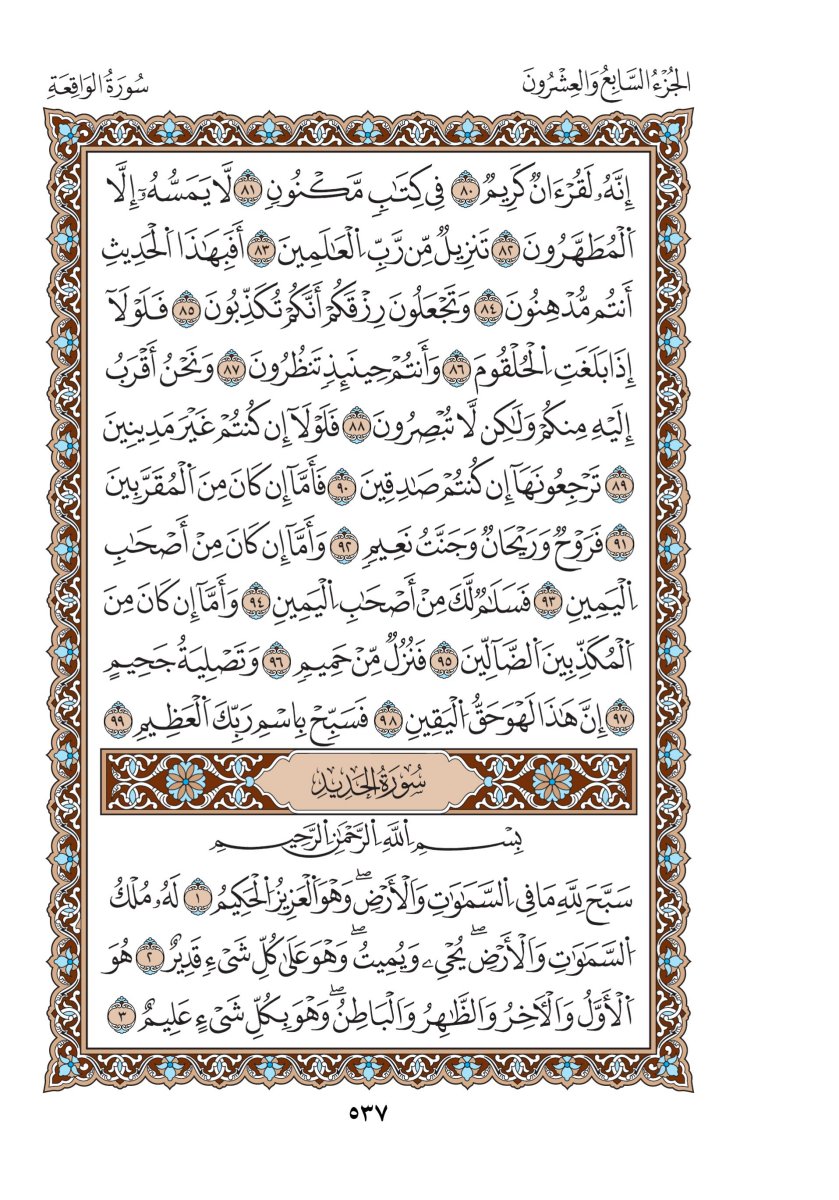 الجُزْءُ السَّابِعُ وَالعِشْرُونَ
سُورَةُ الوَاقِعَةِ
إِنَّهُۥ لَقُرْءَانٌ كَرِيمٌ ٨٠ فِي كِتَٰبٍ مَّكْنُونٍ ٨١ لَّا يَمَسُّهُۥٓ إِلَّا
اَ۬لْمُطَهَّرُونَ ٨٢ تَنزِيلٌ مِّن رَّبِّ اِ۬لْعَٰلَمِينَ ٨٣ أَفَبِهَٰذَا اَ۬لْحَدِيثِ
أَنتُم مُّدْهِنُونَ ٨٤ وَتَجْعَلُونَ رِزْقَكُمْ أَنَّكُمْ تُكَذِّبُونَ ٨٥ فَلَوْلَآ
إِذَا بَلَغَتِ اِ۬لْحُلْقُومَ ٨٦ وَأَنتُمْ حِينَئِذٍ تَنظُرُونَ ٨٧ وَنَحْنُ أَقْرَبُ
إِلَيْهِ مِنكُمْ وَلَٰكِن لَّا تُبْصِرُونَ ٨٨ فَلَوْلَآ إِن كُنتُمْ غَيْرَ مَدِينِينَ
٨٩ تَرْجِعُونَهَآ إِن كُنتُمْ صَٰدِقِينَ ٩٠ فَأَمَّآ إِن كَانَ مِنَ اَ۬لْمُقَرَّبِينَ
٩١ فَرَوْحٌ وَرَيْحَانٌ وَجَنَّتُ نَعِيمٍ ٩٢ وَأَمَّآ إِن كَانَ مِنْ أَصْحَٰبِ
اِ۬لْيَمِينِ ٩٣ فَسَلَٰمٌ لَّكَ مِنْ أَصْحَٰبِ اِ۬لْيَمِينِ ٩٤ وَأَمَّآ إِن كَانَ مِنَ
اَ۬لْمُكَذِّبِينَ اَ۬لضَّآلِّينَ ٩٥ فَنُزُلٌ مِّنْ حَمِيمٍ ٩٦ وَتَصْلِيَةُ جَحِيمٍ
٩٧ إِنَّ هَٰذَا لَهْوَ حَقُّ اُ۬لْيَقِينِ ٩٨ فَسَبِّحْ بِاسْمِ رَبِّكَ اَ۬لْعَظِيمِ ٩٩
سُورَةُ الحَدِيدِ
بِسْمِ اِ۬للَّهِ اِ۬لرَّحْمَٰنِ اِ۬لرَّحِيمِ
سَبَّحَ لِلَّهِ مَا فِي اِ۬لسَّمَٰوَٰتِ وَالْأَرْضِۖ وَهْوَ اَ۬لْعَزِيزُ اُ۬لْحَكِيمُ ١ لَهُۥ مُلْكُ
اُ۬لسَّمَٰوَٰتِ وَالْأَرْضِۖ يُحْيِۦ وَيُمِيتُۖ وَهْوَ عَلَىٰ كُلِّ شَيْءٍ قَدِيرٌ ٢ هُوَ
اَ۬لْأَوَّلُ وَالْأٓخِرُ وَالظَّٰهِرُ وَالْبَاطِنُۖ وَهْوَ بِكُلِّ شَيْءٍ عَلِيمٌ ٣
٥٣٧